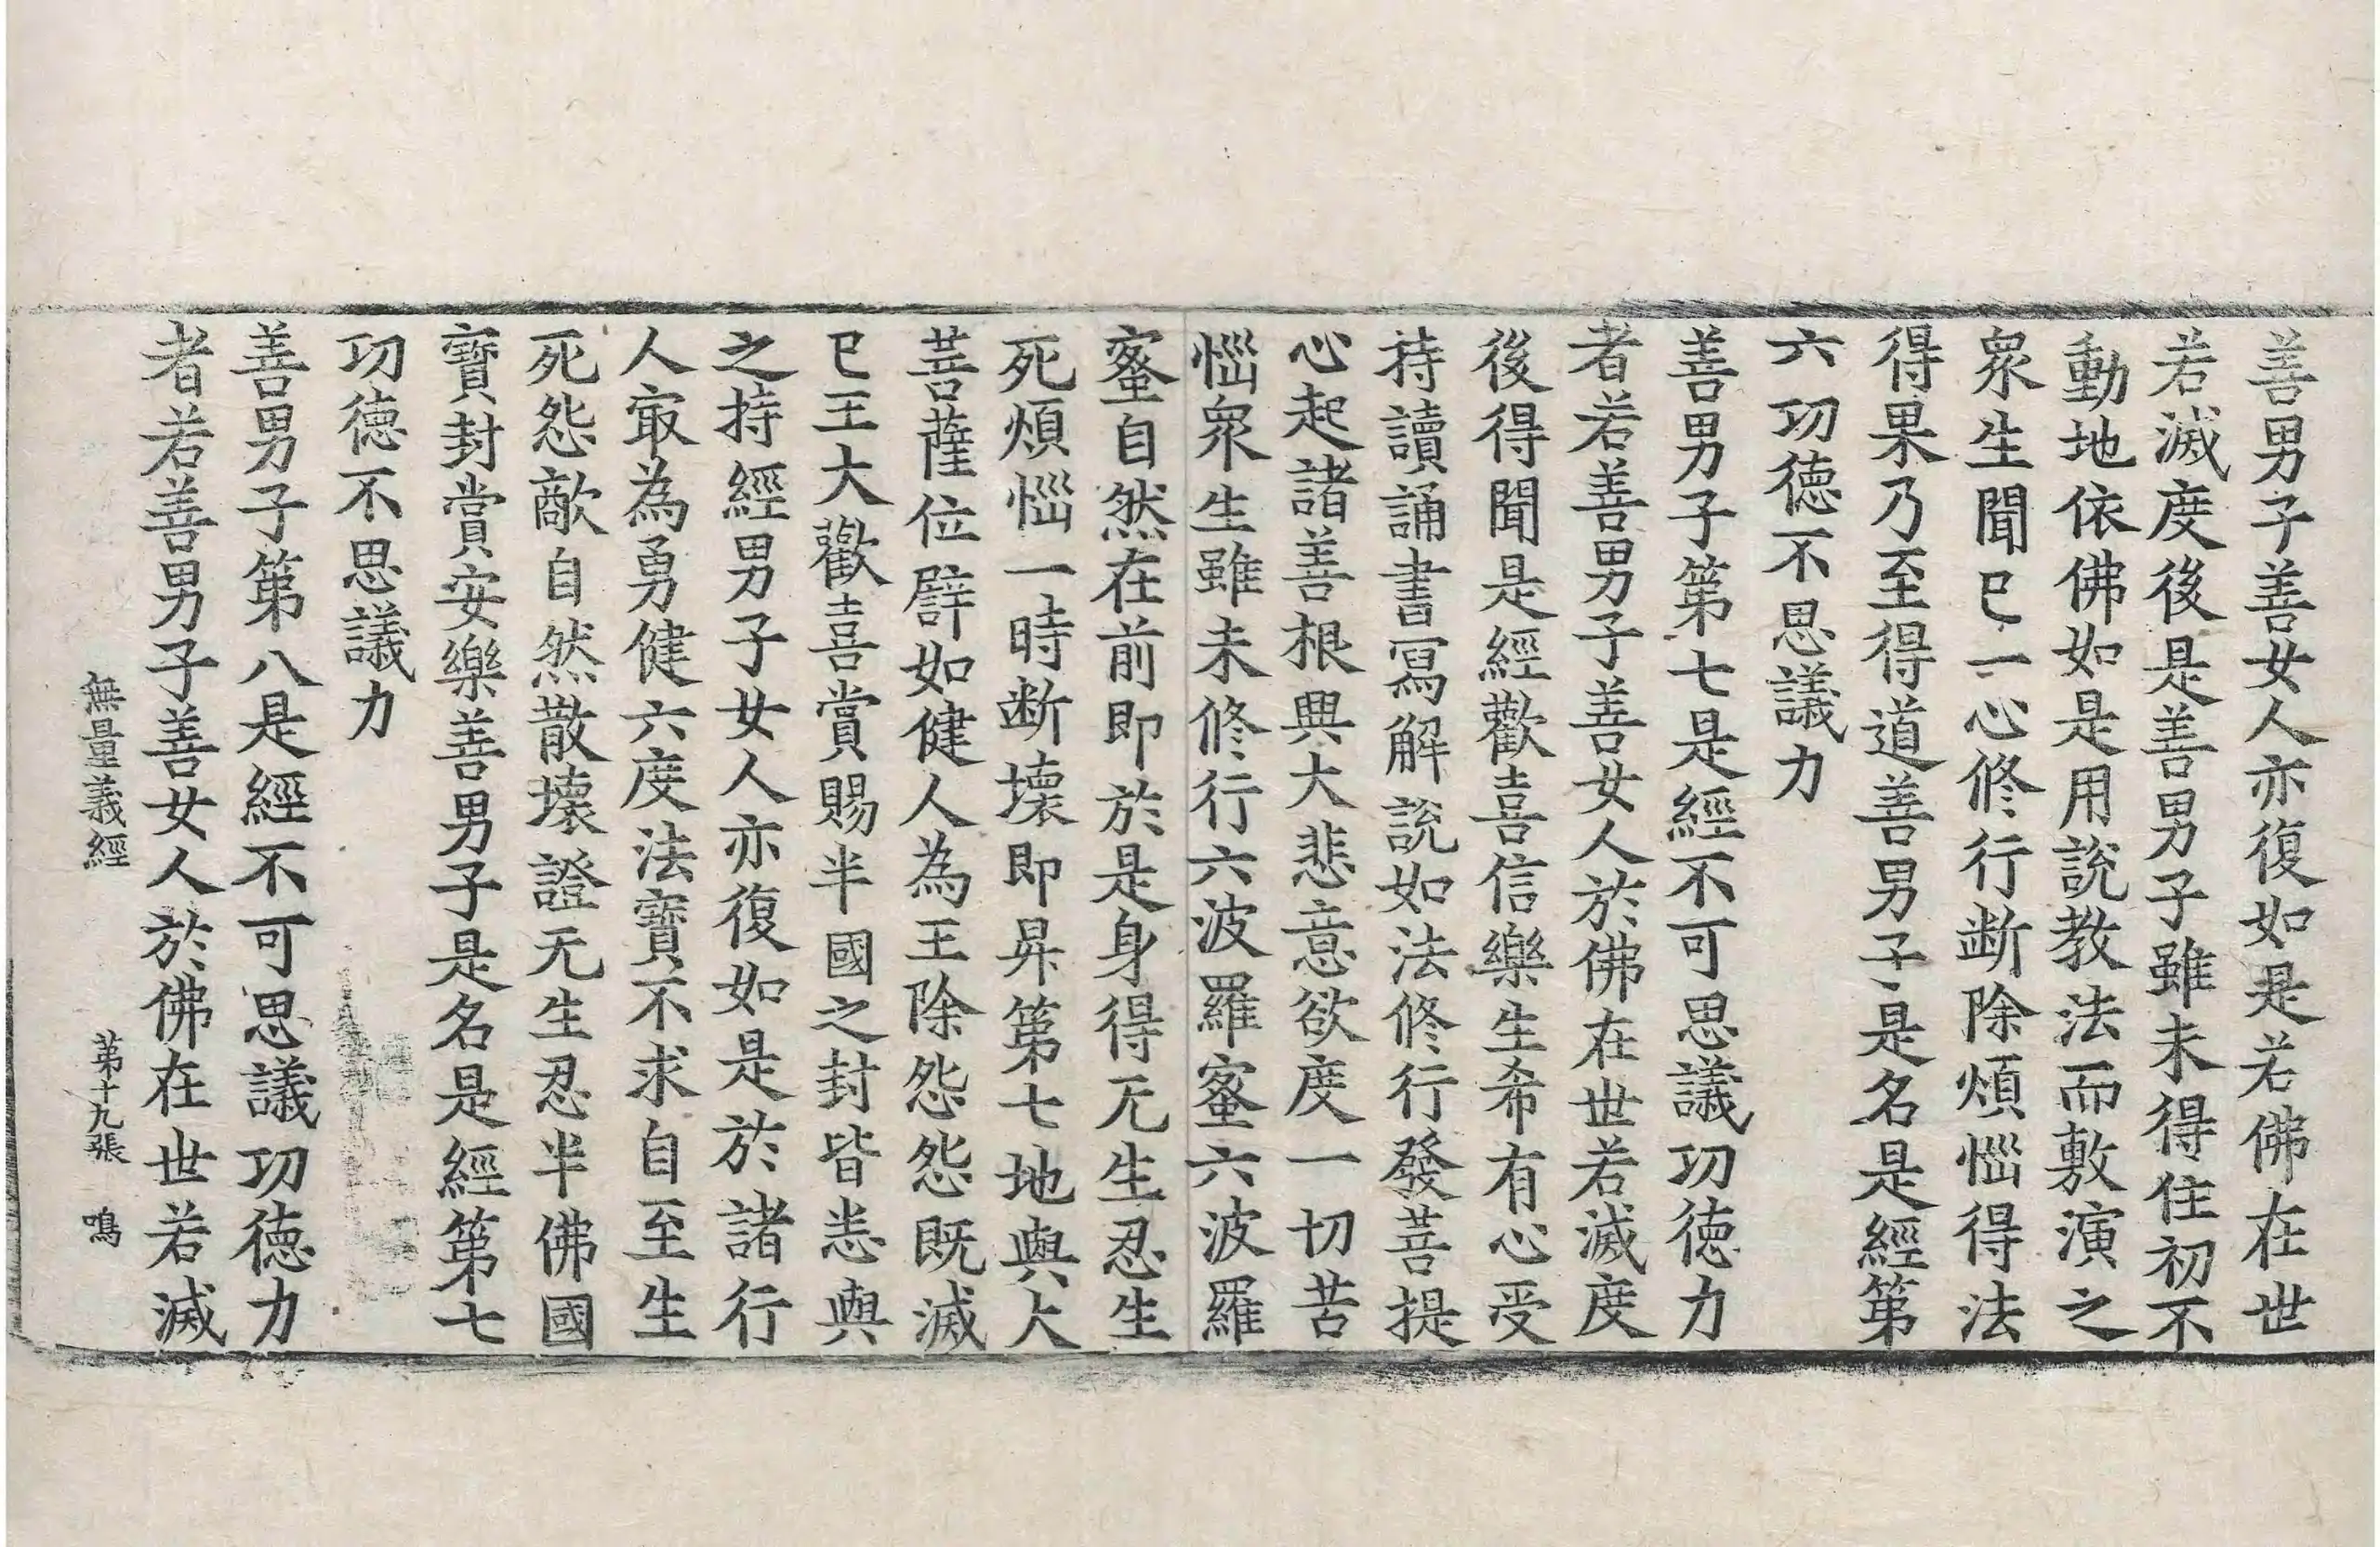 善男子善女人亦復如是若佛在世
若滅度後是善男子雖未得住初不
動地依佛如是用說教法而敷演之
衆生聞已一心修行斷除煩惱得法
得果乃至得道善男子是名是經第
六功德不思議力
善男子第七是經不可思議功徳力
者若善男子善女人於佛在世若滅度
後得聞是經歡喜信樂生希有心受
持讀誦書寫解說如法修行發菩提
心起諸善根興大悲意欲度一切苦
惱衆生雖未修行六波羅蜜六波羅
蜜自然在前即於是身得无生忍生
死煩惱一時断壞即昇第七地與大
菩薩位譬如健人為王除怨怨既滅
已王大歡喜賞賜半國之封皆悉與
之持經男子女人亦復如是於諸行
人㝡為勇健六度法寶不求自至生
死怨敵自然散壞證无生忍半佛國
寶封賞安樂善男子是名是經第七
功德不思議力
善男子第八是經不可思議功德力
者若善男子善女人於佛在世若滅
無量義經 第十九張 鳴